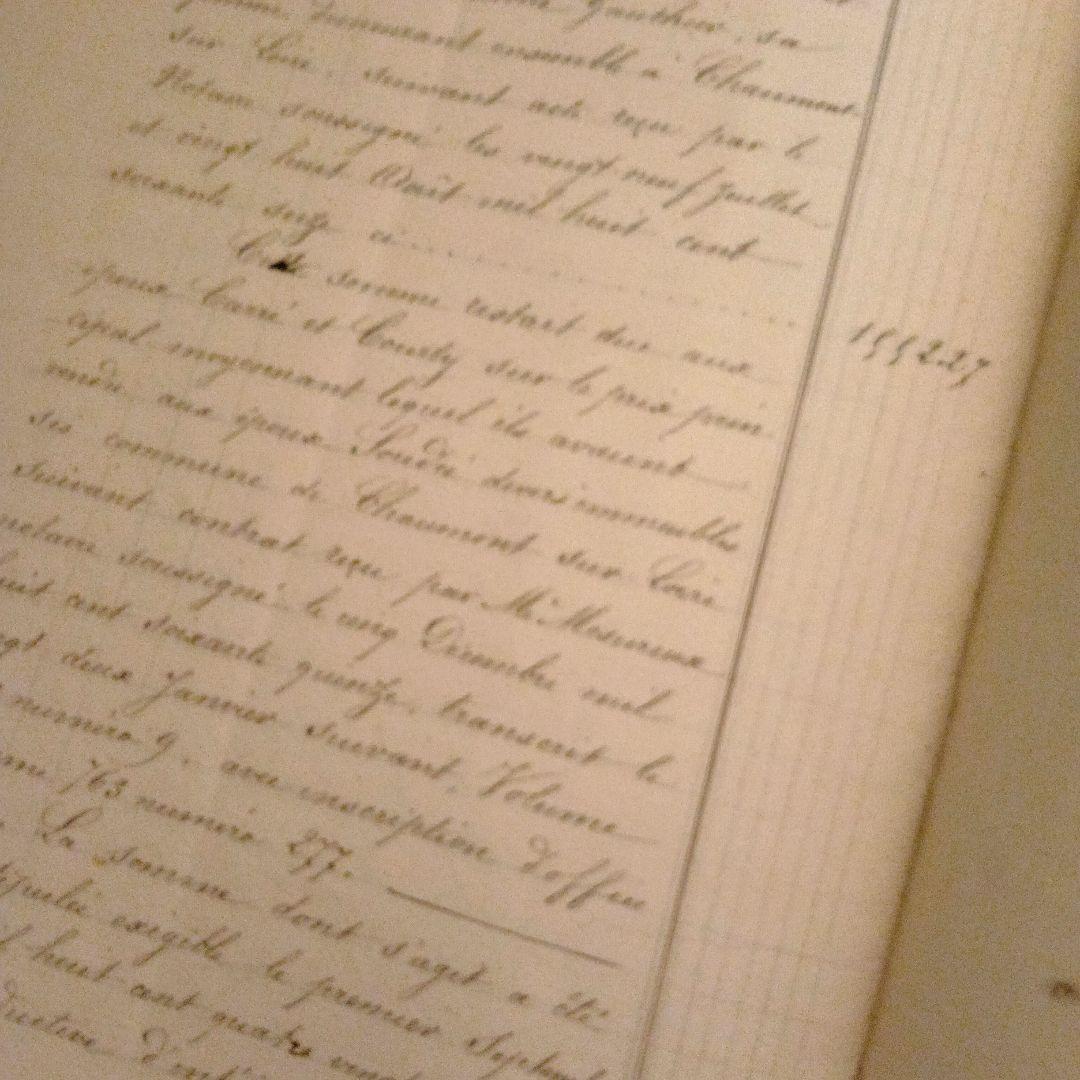 Gauthier, sa
femme demeurant ensemble à Chaumont
sur Loire, suivant acte reçu par le
Notaire soussigné les vingt neuf Juillet
et vingt huit Août mil huit cent
soixante seize ci
Cette somme restant due aux
époux Carré et Cousty sur le prix prin
cipal moyennant lequel ils avaient
vendu aux époux Soudé divers immeubles
sis commune de Chaumont sur Loire
suivant contrat reçu par Me Mesureux
notaire soussigné le cinq Décembre mil
huit cent soixante quinze, transcrit le
vingt deux Janvier suivant, Volume
numéro 9, avec inscription d'office
763 numéro 277.
La somme dont s'agit a été
stipulée exigible le premier Septem
huit cent quatre vingt
1552.27